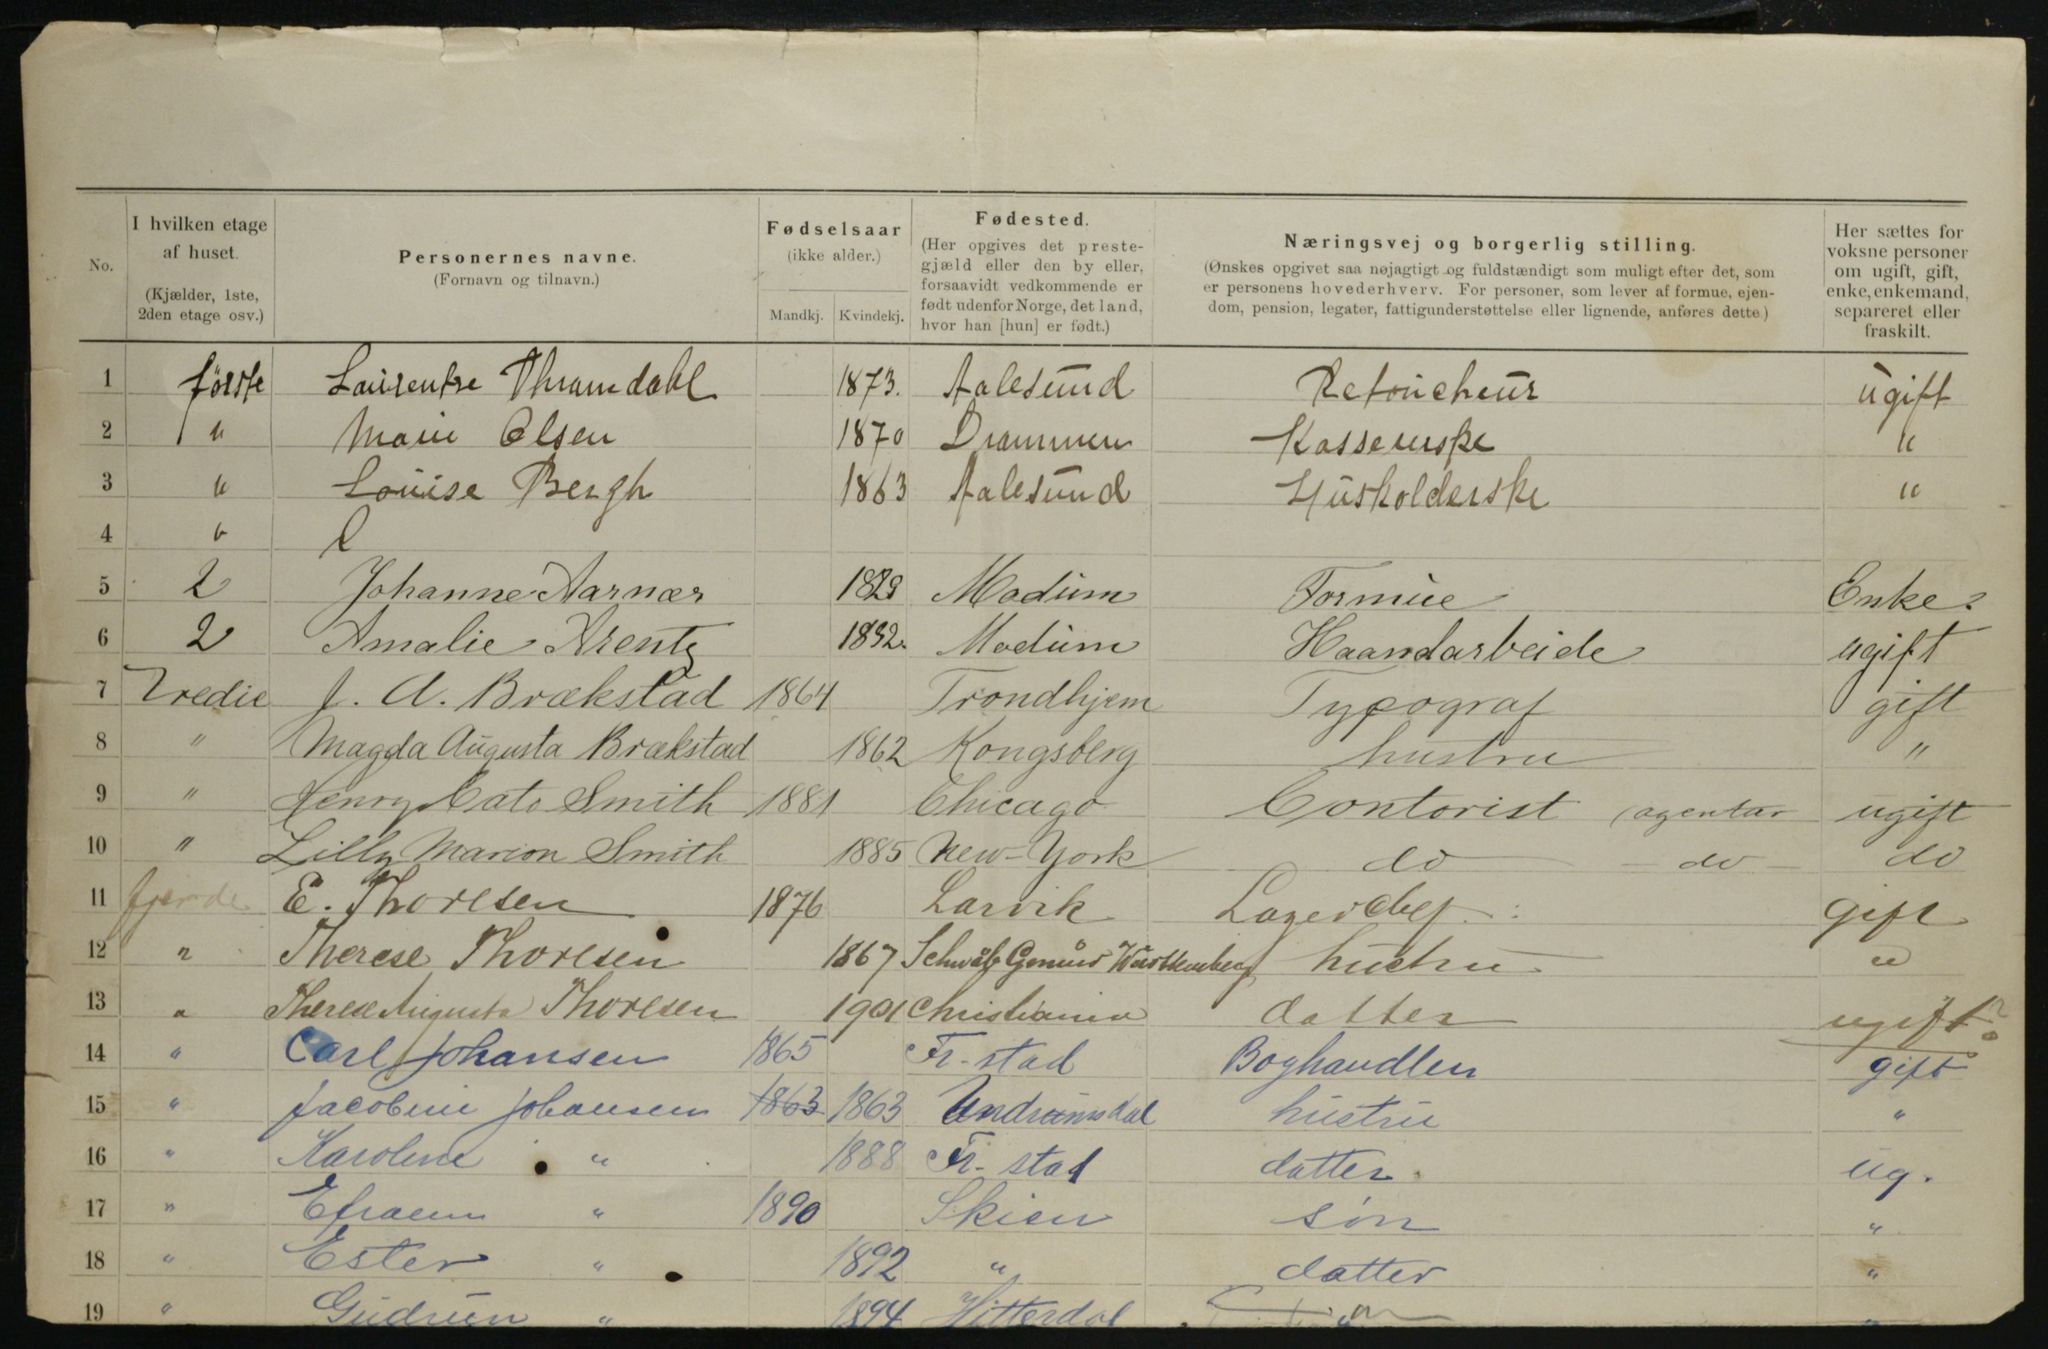 No.
I hvilken etage af huset. (Kjælder, 1ste, 2den etage osv.)
Personernes navne. (Fornavn og tilnavn.)
Fødselsaar (ikke alder.)
Mandkj. Kvindekj.
Fødested. (Her opgives det prestegjæld eller den by eller, forsaavidt vedkommende er født udenfor Norge, det land, hvor han [hun] er født.)
Næringsvej og borgerlig stilling. (Ønskes opgivet saa nøjagtigt og fuldstændigt som muligt efter det, som er personens hovederhverv. For personer, som lever af formue, ejendom, pension, legater, fattigunderstøttelse eller lignende, anføres dette.)
Her sættes for voksne personer om ugift, gift, enke, enkemand, separeret eller fraskilt.
1 første Laurentse Thramdahl 1873. Aalesund Retoucheur ugift
2 " Marie Olsen 1870 Drammen Kasserske "
3 " Louise Bergh 1863 Aalesund Husholderske "
4 "
5 2 Johanne Aarnæs 1829 Modum Formue Enke.
6 2 Amalie Arentz 1832. Modum Haandarbeide ugift
7 Tredie J. A. Brækstad 1864 Trondhjem Typograf gift
8 " Magda Augusta Brækstad 1862 Kongsberg hustru "
9 " Henry Cato Smith 1881 Chicago Contorist (agentur ugift
10 " Lilly Marion Smith 1885 New-York do do do
11 fjerde E. Thoresen 1876 Larvik Lagerchef gift
12 " Therese Thoresen 1867 Schwäb Gmünd Württemberg hustru "
13 " Therese Augusta Thoresen 1901 Christiania datter ugift?
14 " Carl Johansen 1865 Fr.stad Boghandler gift
15 " Jacobine Johansen 1863 1863 hustru "
16 " Karoline " 1888 Fr.stad datter ug.
17 " Efraim " 1890 Skien søn "
18 " Ester " 1892 " datter "
19 " Gudrun " 1894 Hitterdal "